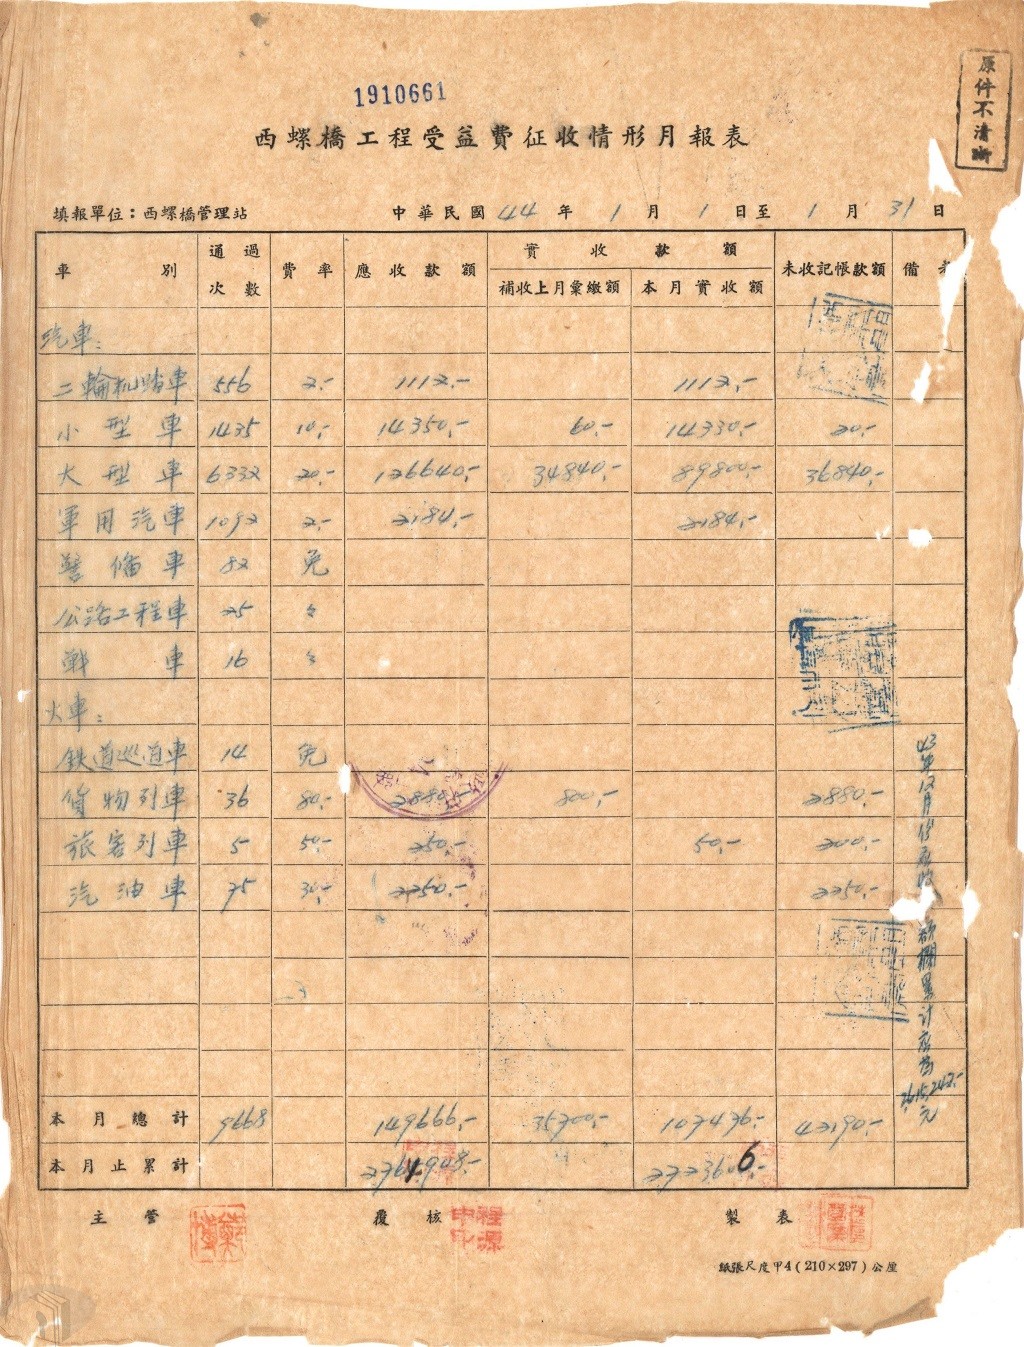 原件不清晰
1910661
西螺橋工程受益費征收情形月報表
填報單位：西螺橋管理站 中華民國44年1月1日至1月31日
車別 通過次數 費率 應收款額 實收款額 未收記帳款額 備考
補收上月彙繳額 本月實收額
汽車：
二輪机踏車 556 2.- 1112.- 1112.-
小型車 1435 10.- 14350.- 60.- 14330.- 20.-
大型車 6332 20.- 126640.- 34840.- 89800.- 36840.-
軍用汽車 1092 2.- 2184.- 2184.-
警備車 82 免
公路工程車 25 〃
戰車 16 〃
火車：
鉄道巡道車 14 免
貨物列車 36 80.- 2880.- 800.- 2880.-
旅客列車 5 50.- 250.- 50.- 200.-
汽油車 75 30.- 2250.- 2250.-
43年12月份應收 額欄累计應為
2615,242.-元
本月總計 9668 149666.- 35700.- 107476.- 42190.-
本月止累計
主管 覆核 製表
紙張尺度甲4(210×297)公厘